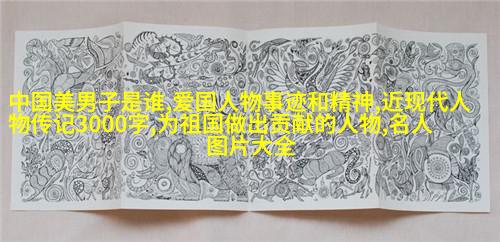 中国美男子是谁,爱国人物事迹和精神,近现代人
物传记3000字,为祖国做出贡献的人物,名人
图片大全